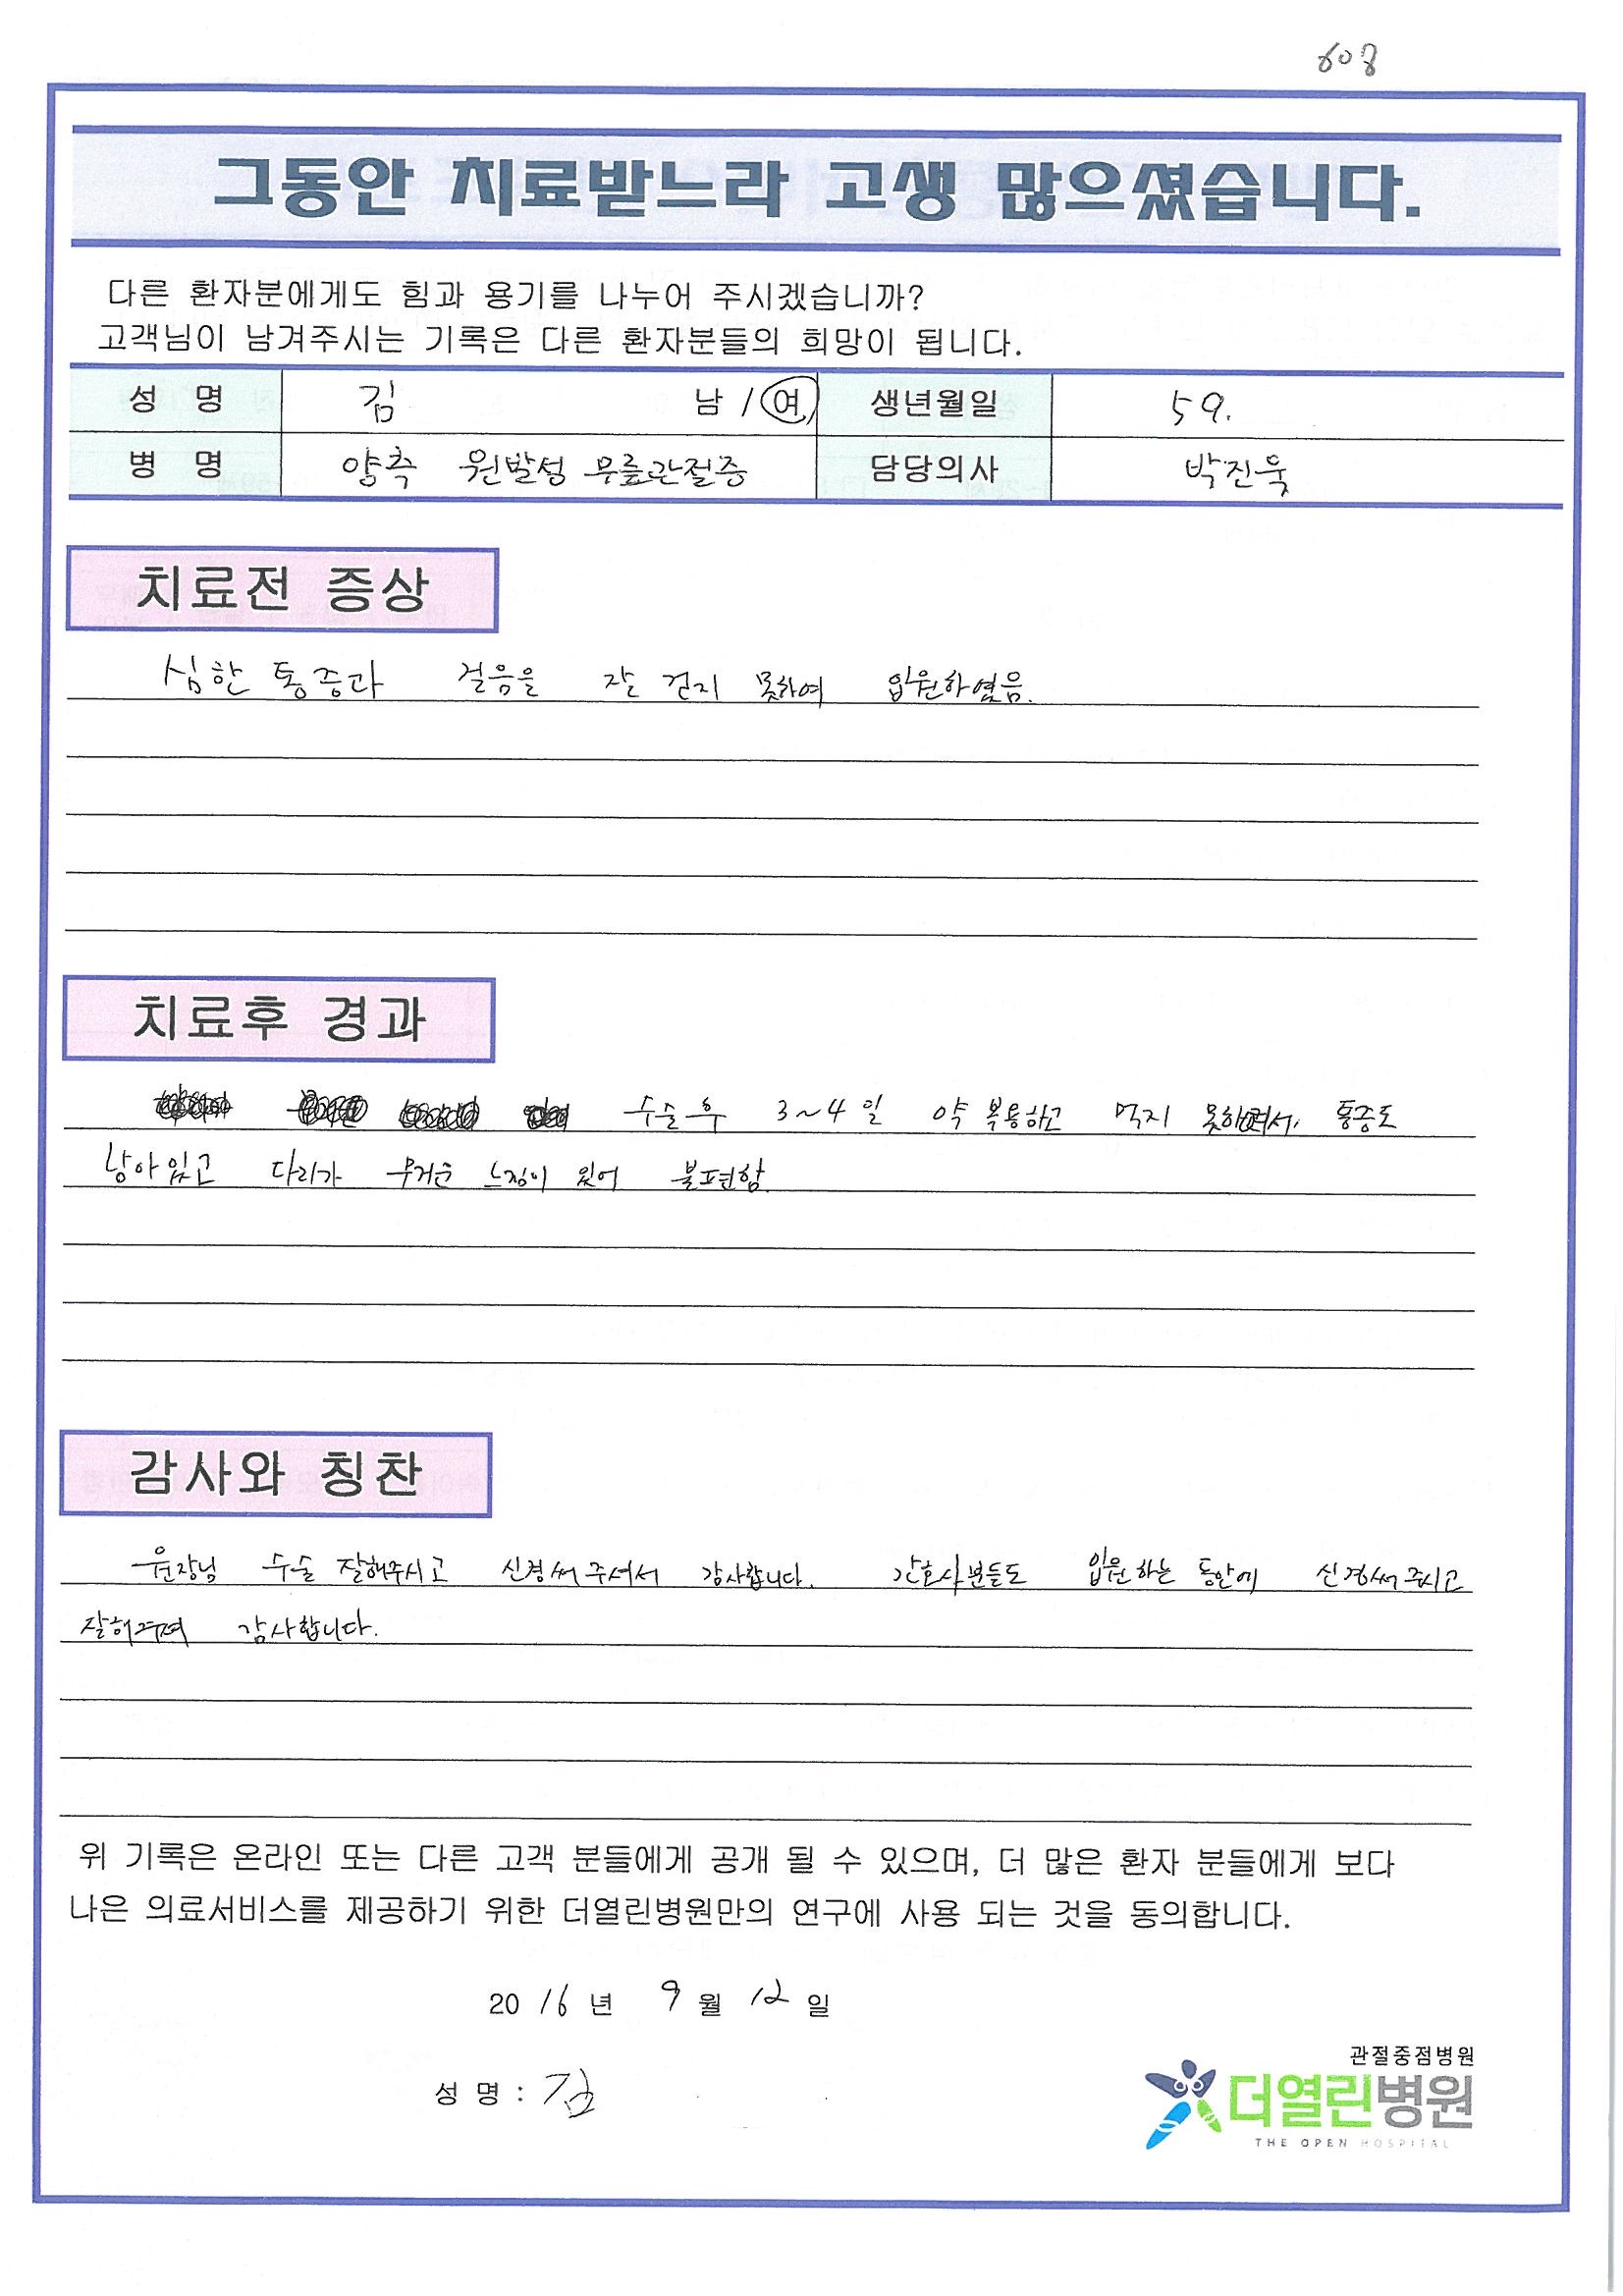 608
그동안 치료받느라 고생 많으셨습니다.
다른 환자분에게도 힘과 용기를 나누어 주시겠습니까?
고객님이 남겨주시는 기록은 다른 환자분들의 희망이 됩니다.
성 명 김 남 / 여 생년월일 59.
병 명 양측 원발성 무릎관절증 담당의사 박진욱
치료전 증상
심한 통증과 걸음을 잘 걷지 못하여 입원하였음.
치료후 경과
수술후 3~4일 약 복용하고 먹지 못하면서, 통증도
남아있고 다리가 무거운 느낌이 있어 불편함.
감사와 칭찬
원장님 수술 잘해주시고 신경써주셔서 감사합니다. 간호사분들도 입원하는 동안에 신경써주시고
잘해주며 감사합니다.
위 기록은 온라인 또는 다른 고객 분들에게 공개 될 수 있으며, 더 많은 환자 분들에게 보다
나은 의료서비스를 제공하기 위한 더열린병원만의 연구에 사용 되는 것을 동의합니다.
2016년 9월 12일
성 명 : 김
관절중점병원
더열린병원
THE OPEN HOSPITAL